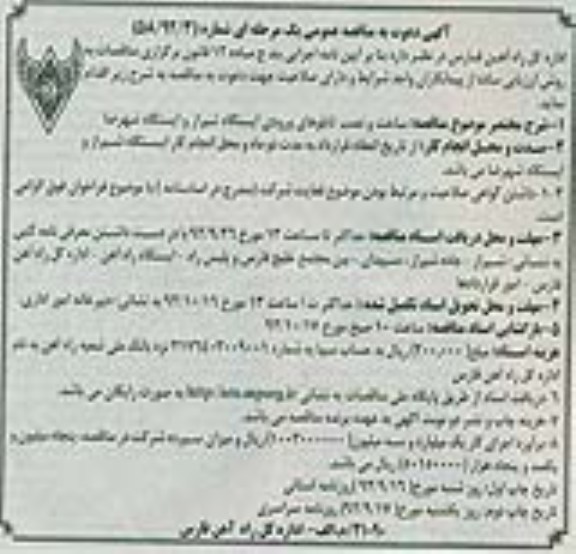 آگهی دعوت به مناقصه عمومی یک مرحله ای شماره (۵۸/۹۲/۳)
اداره کل راه آهن فارس در نظر دارد بنا بر آیین نامه اجرایی بند ج ماده ۱۲ قانون برگزاری مناقصات به
روش ارزیابی ساده از پیمانکاران واجد شرایط و دارای صلاحیت جهت دعوت به مناقصه به شرح زیر اقدام
نماید.
۱- شرح مختصر موضوع مناقصه: ساخت و نصب تابلوهای ورودی ایستگاه شیراز و ایستگاه شهرضا
۲- مدت و محل انجام کار: از تاریخ انعقاد قرارداد به مدت دو ماه و محل انجام کار ایستگاه شیراز و
ایستگاه شهرضا می باشد.
داشتن گواهی صلاحیت و مرتبط بودن موضوع فعالیت شرکت (مندرج در اساسنامه) با موضوع فراخوان فوق الزامی
است.
۳- مهلت و محل دریافت اسناد مناقصه: حداکثر تا ساعت ۱۳ مورخ با در دست داشتن معرفی نامه کتبی
به نشانی: شیراز - جاده شیراز - بین مجتمع خلیج فارس و پلیس راه - ایستگاه راه آهن - اداره کل راه آهن
فارس - امور قراردادها
۴- مهلت و محل تحویل اسناد تکمیل شده: حداکثر تا ساعت ۱۳ مورخ به نشانی دبیرخانه امور اداری.
۵- بازگشایی اسناد مناقصه: ساعت ۱۰ صبح مورخ
هزینه اسناد: مبلغ ریال به حساب سیبا به شماره نزد بانک ملی شعبه راه آهن به نام
اداره کل راه آهن فارس
۶- دریافت اسناد از طریق پایگاه ملی مناقصات به نشانی به صورت رایگان می باشد.
۷- هزینه چاپ و نشر دو نوبت آگهی به عهده برنده مناقصه می باشد.
۸- برآورد اجرای کار یک میلیارد و سه میلیون ریال و میزان سپرده شرکت در مناقصه پنجاه میلیون و
یکصد و پنجاه هزار (۵۰۱۵۰۰۰۰) ریال می باشد.
تاریخ چاپ اول: روز شنبه مورخ روزنامه استانی
تاریخ چاپ دوم: روز یکشنبه مورخ روزنامه سراسری
م/الف - اداره کل راه آهن فارس